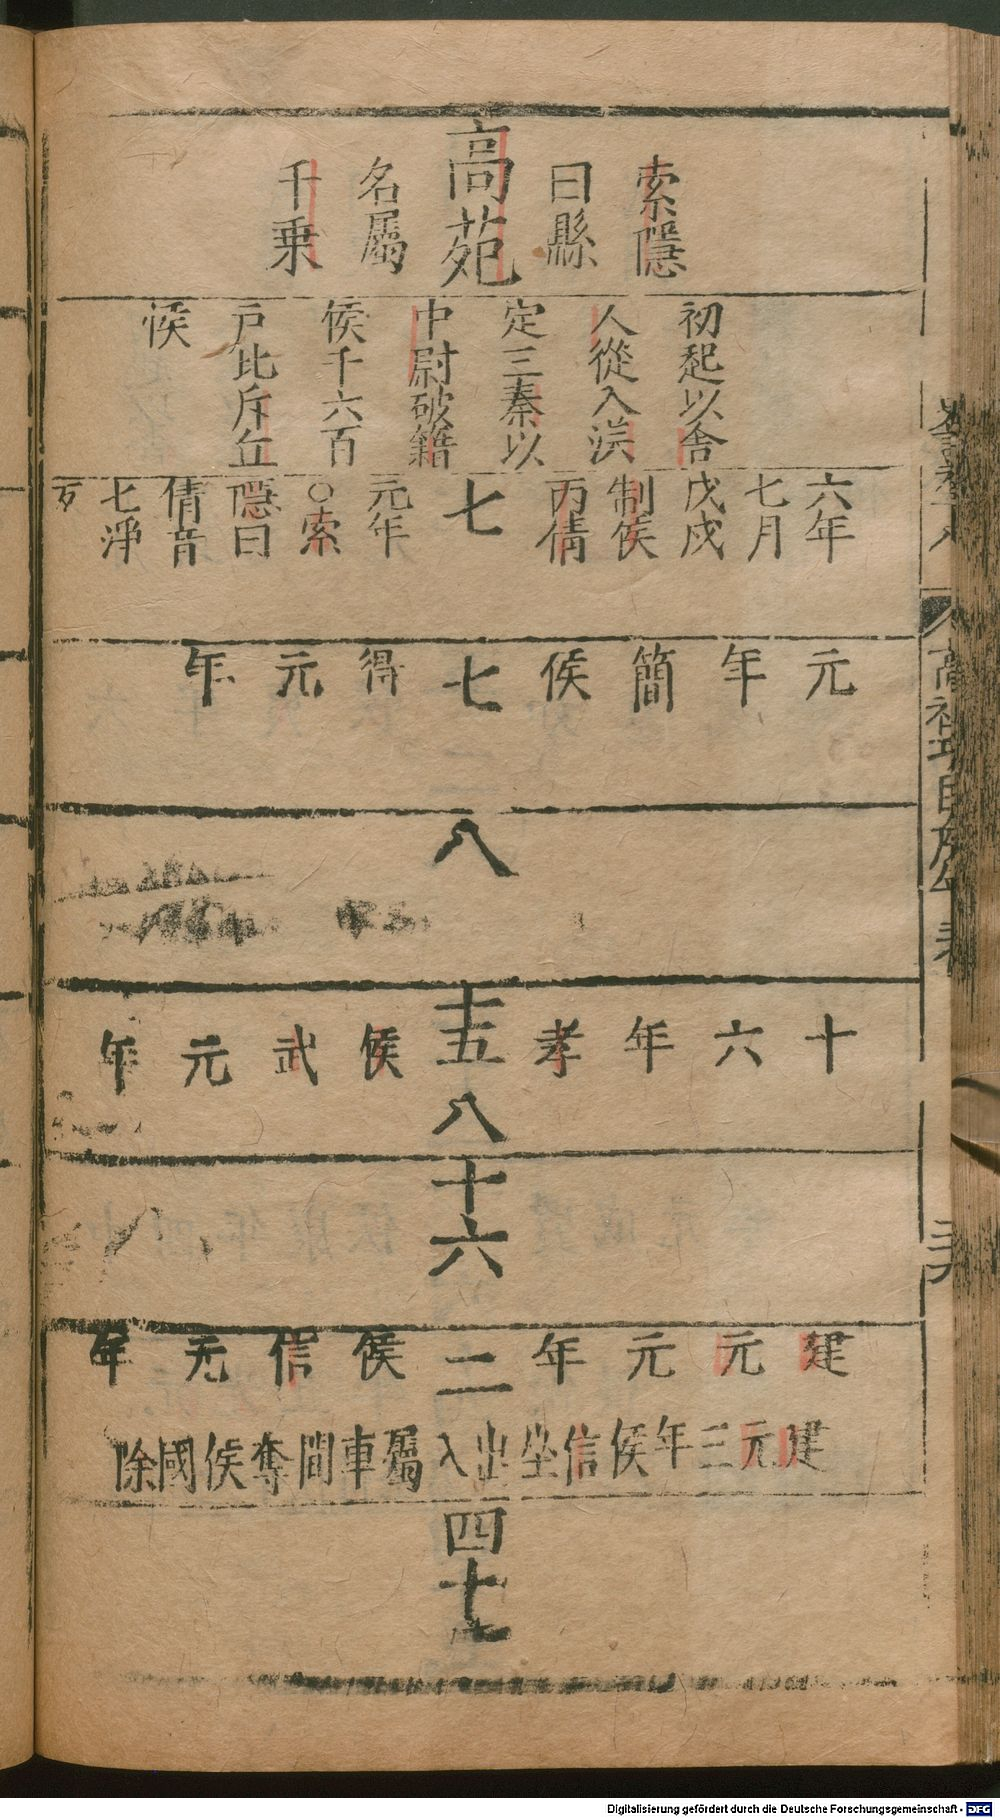 索隱
曰縣
高苑
名屬
千乗
初起以舍
人從入漢
定三秦以
中尉破籍
侯千六百
戸比斥丘
侯
六年
七月
戊戌
制侯
丙倩
七
元年
○索
隱曰
倩音
七淨
反
元
年
簡
侯
七
得
元
年
八
十
六
年
孝
十五
八
侯
武
元
年
十六
建
元
元
年
二
侯
信
元
年
建元三年侯信坐出入屬車間奪侯國除
四十七
高祖功臣侯年表
Digitalisierung gefördert durch die Deutsche Forschungsgemeinschaft - DFG